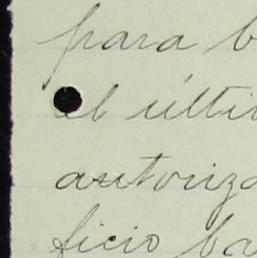 para b
el últi
autoriza
ficio ba